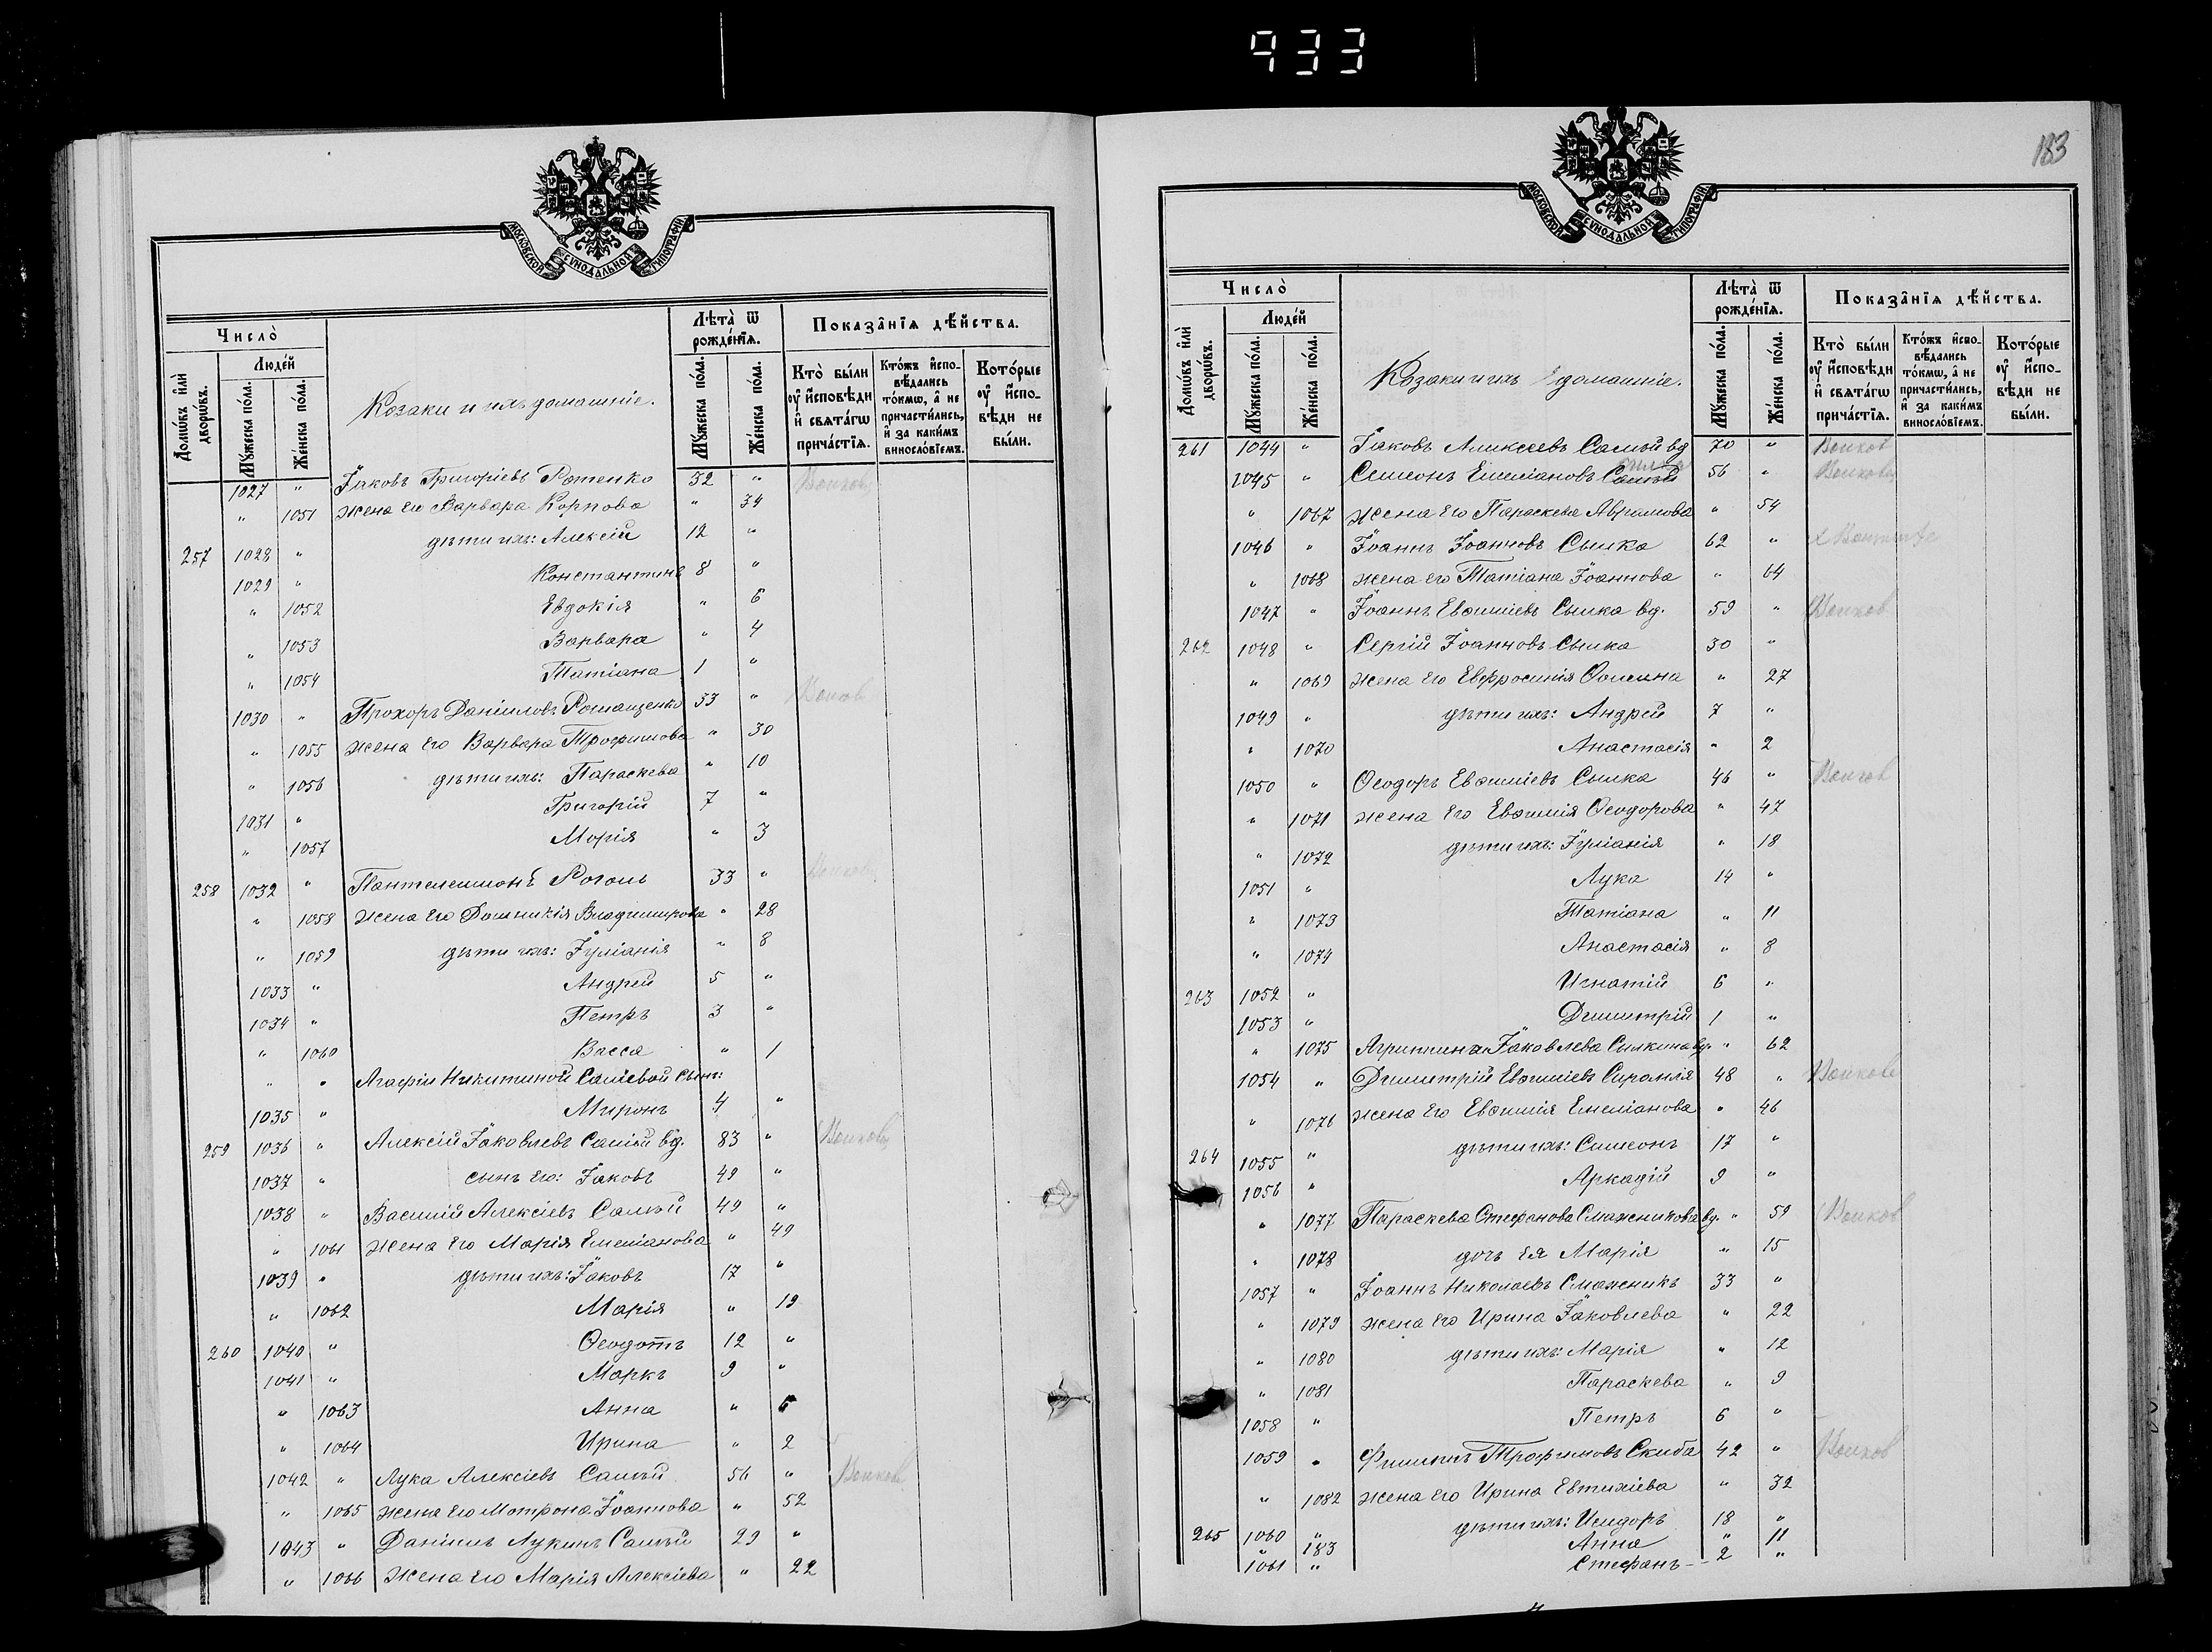 933
МОСКОВСКОЙ СѴНОДАЛЬНОЙ ТИПОГРАФІИ
Число̀
Людéй
Домѡ́въ и҆лѝ дворѡ́въ.
Мꙋ́жеска по́ла.
Же́нска по́ла.
Козаки и ихъ домашніе.
Лѣта̀ ѿ рожде́нїѧ.
Мꙋ́жеска по́ла.
Же́нска по́ла.
Показа̂нїѧ дѣ́йства.
Кто̀ бы́ли ᲂу҆ и҆сповѣди и҆ свѧта́гѡ прича́стїѧ.
Кто́жъ и҆споวѣ́дались то́кмѡ, а҆ не причасти́лись, и҆ за каки́мъ винослóвїемъ.
Кото́рые ᲂу҆ и҆сповѣди не бы́ли.
1027 " Іаковъ Григоріевъ Ротенко 32 "
" 1051 жена его Варвара Карпова " 34
257 1028 " дѣти ихъ: Алексій 12 "
1029 " Константинъ 8 "
" 1052 Евдокія " 6
" 1053 Варвара " 4
" 1054 Татіана 1 "
1030 " Прохоръ Даніиловъ Ромащенко 33 "
" 1055 жена его Варвара Трофимова " 30
" 1056 дѣти ихъ: Параскева " 10
1031 " Григорій 7 "
" 1057 Марія " 3
258 1032 " Пантелеимонъ Роголь 33 "
" 1058 жена его Домникія Владимирова " 28
" 1059 дѣти ихъ: Іуліанія " 8
1033 " Андрей 5 "
1034 " Петръ 3 "
" 1060 Васса " 1
" " Агафіи Никитиной Саліевой сынъ:
1035 " Миронъ 4 "
259 1036 " Алексій Іаковлевъ Салій вд. 83 "
1037 " сынъ его: Іаковъ 49 "
1038 " Василій Алексіевъ Салъй 49 "
" 1061 жена его Марія Емеліанова " 49
1039 " дѣти ихъ: Іаковъ 17 "
" 1062 Марія " 19
260 1040 " Ѳеодотъ 12 "
1041 " Маркъ 9 "
" 1063 Анна " 6
" 1064 Ирина " 2
1042 " Лука Алексіевъ Салъй 56 "
" 1065 жена его Мотрона Іоаннова " 52
1043 " Даніилъ Лукинъ Салъй 29 "
" 1066 жена его Марія Алексіева " 22
183
МОСКОВСКОЙ СѴНОДАЛЬНОЙ ТИПОГРАФІИ
Число̀
Людéй
Домѡ́въ и҆лѝ дворѡ́въ.
Мꙋ́жеска по́ла.
Же́нска по́ла.
Козаки и ихъ домашніе.
Лѣта̀ ѿ рожде́нїѧ.
Мꙋ́жеска по́ла.
Же́нска по́ла.
Показа̂нїѧ дѣ́йства.
Кто̀ бы́ли ᲂу҆ и҆сповѣди и҆ свѧта́гѡ прича́стїѧ.
Кто́жъ и҆сповѣ́дались то́кмѡ, а҆ не причасти́лись, и҆ за каки́мъ винослóвїемъ.
Кото́рые ᲂу҆ и҆сповѣди не бы́ли.
261 1044 " Іаковъ Аликсеевъ Салый вд 70 "
1045 " Симеонъ Емеліановъ 56 "
" 1067 жена его Параскева Аврамова " 54
1046 " Іоаннъ Іоанновъ Сылка 62 "
" 1068 жена его Татіана Іоаннова " 64
1047 " Іоаннъ Евѳиміевъ Сылка вд. 59 "
262 1048 " Сергій Іоанновъ Сылка 30 "
" 1069 жена его Евфросинія Ѳомина " 27
1049 " дѣти ихъ: Андрей 7 "
" 1070 Анастасія " 2
1050 " Ѳеодоръ Евѳиміевъ Сылка 46 "
" 1071 жена его Евѳимія Ѳеодорова " 47
" 1072 дѣти ихъ: Іуліанія " 18
1051 " Лука 14 "
" 1073 Татіана " 11
" 1074 Анастасія " 8
263 1052 " Игнатій 6 "
1053 " Димитрій 1 "
" 1075 Агрипина Іаковлева Силкина вд. " 62
1054 " Димитрій Евѳиміевъ Сиромля 48 "
" 1076 жена его Евѳимія Емеліанова " 46
264 1055 " дѣти ихъ: Симеонъ 17 "
1056 " Аркадій 9 "
" 1077 Параскева Стефанова Смажникова вд. " 59
" 1078 дочь ея Марія " 15
1057 " Іоаннъ Николаевъ Смажникъ 33 "
" 1079 жена его Ирина Іаковлева " 22
" 1080 дѣти ихъ: Марія " 12
" 1081 Параскева " 9
1058 " Петръ 6 "
1059 " Филиппъ Трофимовъ Скиба 42 "
" 1082 жена его Ирина Евтихіева " 32
265 1060 " дѣти ихъ: Исидоръ 18 "
" 183 Анна " 11
1061 " Стефанъ 2 "